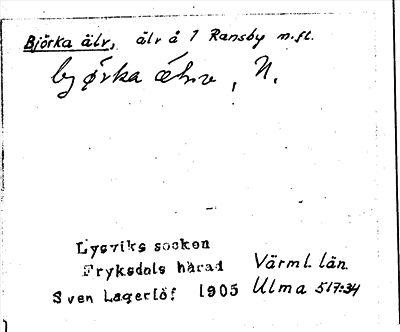 Björka älv, älv å 1 Ransby m.fl.
Lysviks socken
Fryksdals härad Värml. län.
Sven Lagerlöf 1905 Ulma 517:34